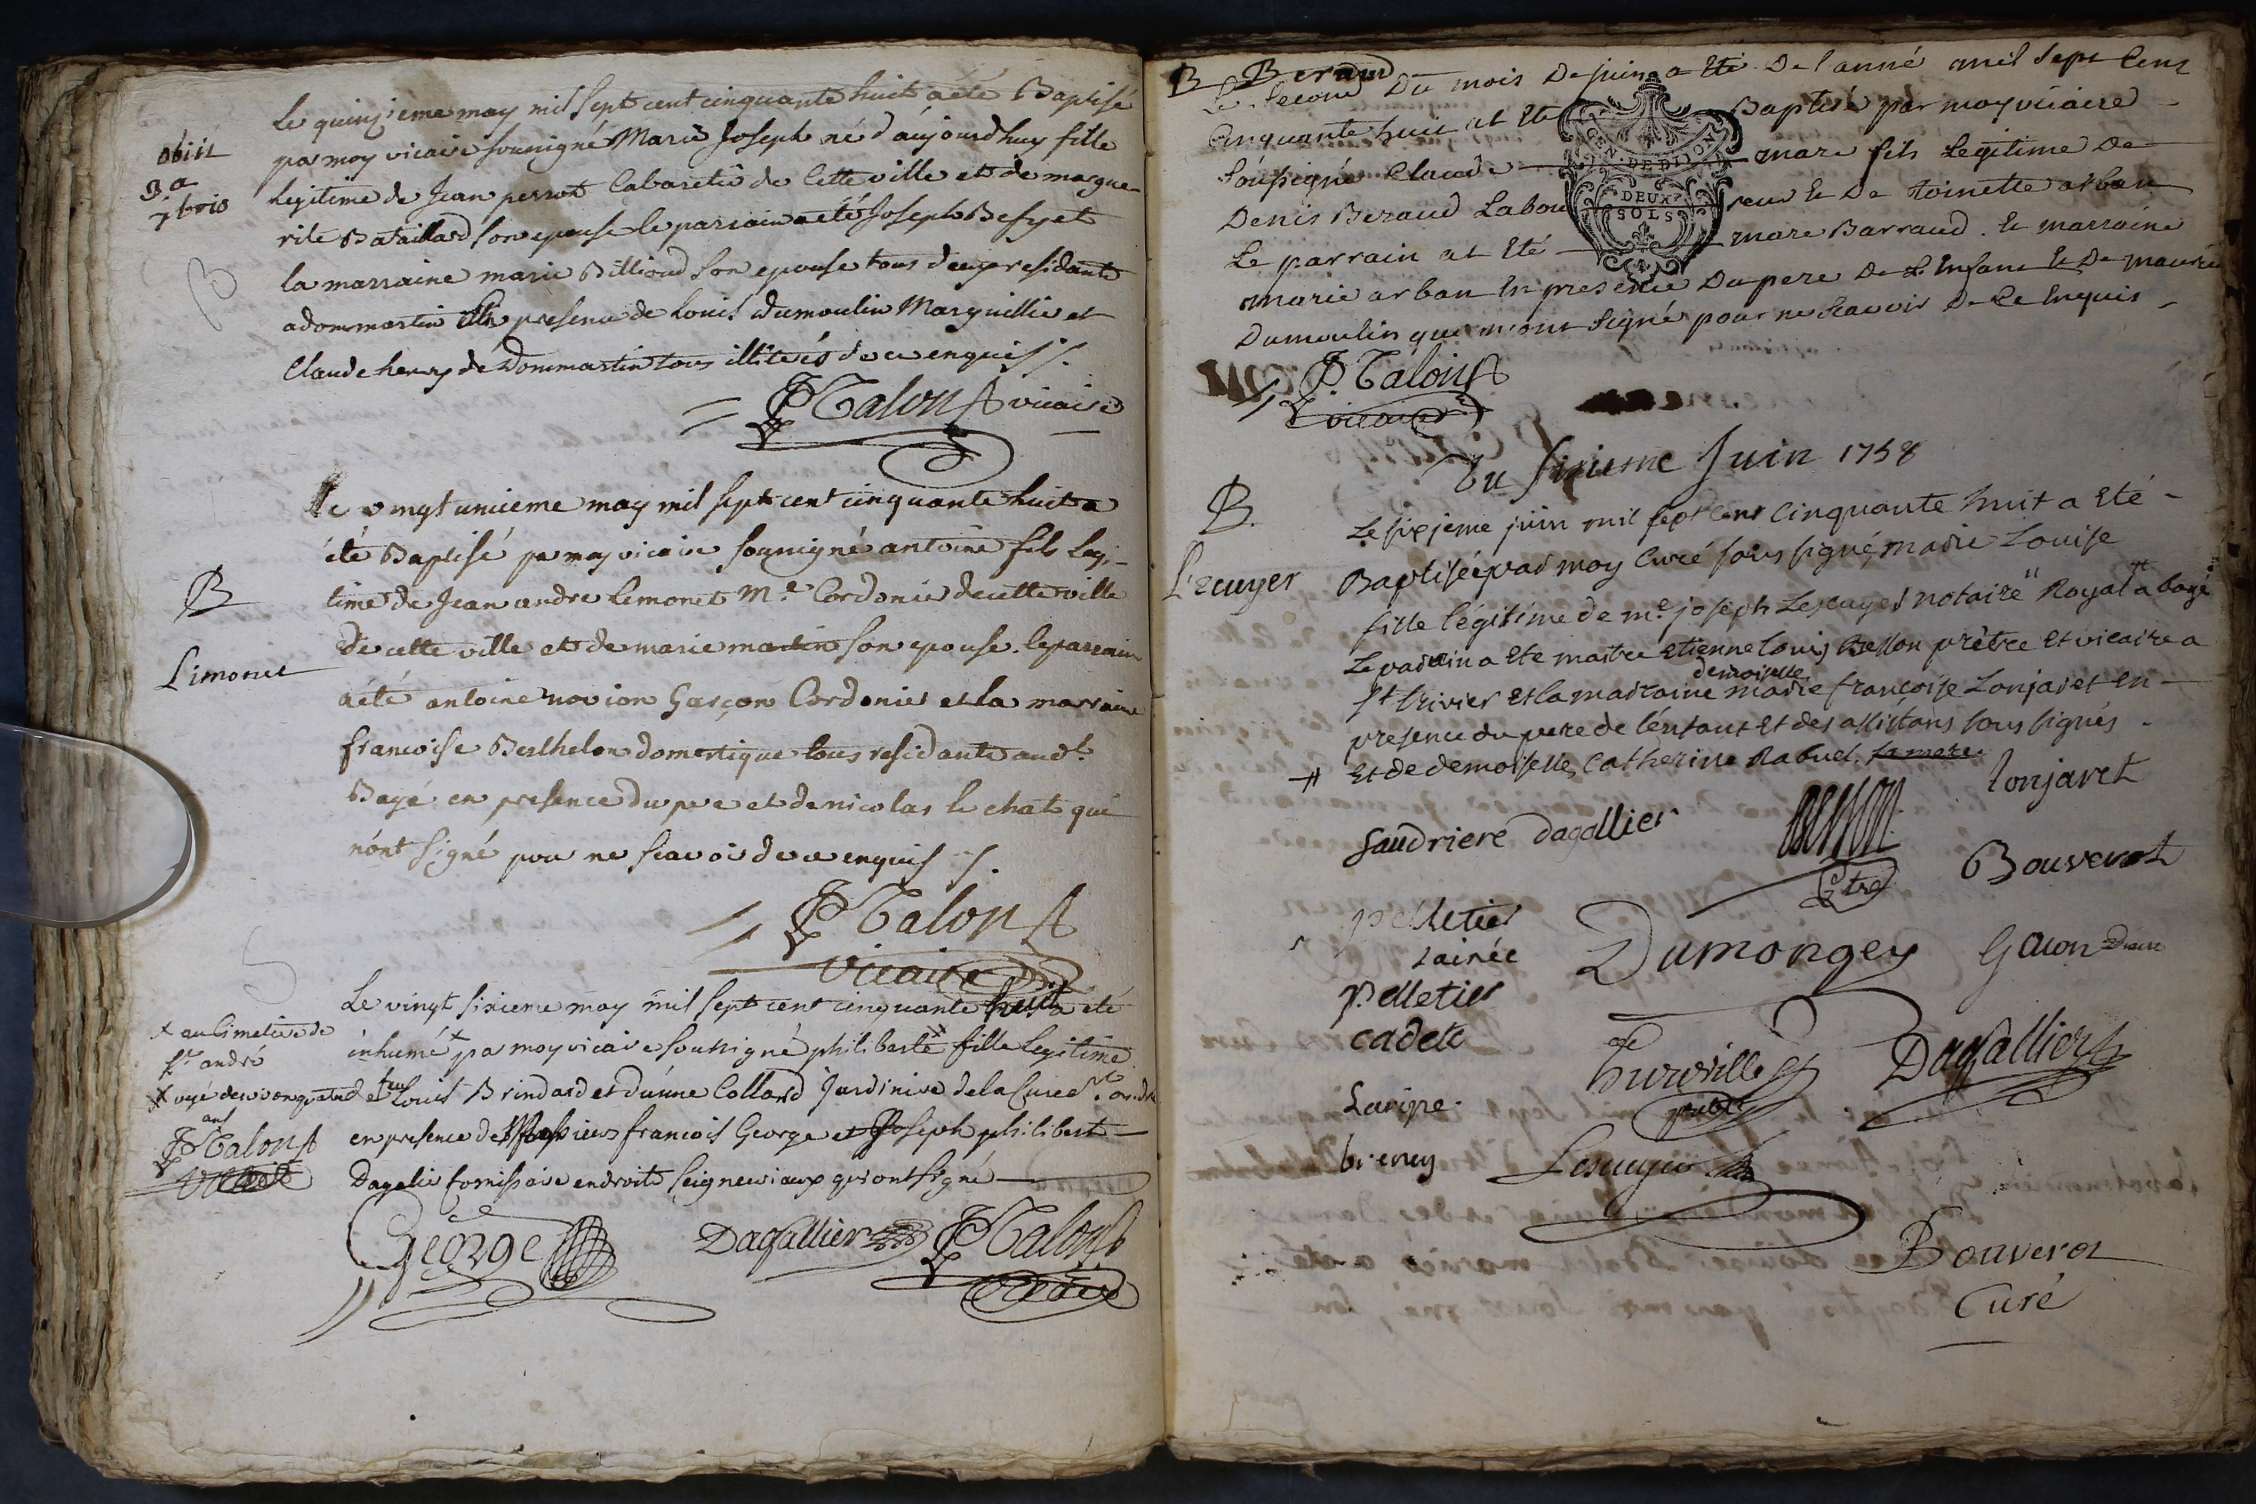 Le quinzieme may mil sept cent cinquante huit a été Baptisé
obiit
par moy vicaire soussigné Marie Joseph né d'aujourdhuy fille
3a
7bris
legitime de Jean perrot Cabaretie de Cette ville et de margue-
rite Bataillard son epouse le parrain a eté Joseph Befy et
B
la marraine marie Billioud son epouse tous deux residants
a dommartin en presence de Louis dumoulin Marguillie et
Claude henry de Dommartin tous illiterés de ce enquis ./.
JP Talon vicaire
Le vingt unieme may mil sept cent cinquante huit a
été Baptisé par moy vicaire soussigné antoine fils Legi-
B
time de Jean andre Lemonet Me. Cordonie de cette ville
de cette ville et de marie martin son epouse. le parrain
Limonet
a été antoine novion Garçon Cordonie et la marraine
francoise Berthelon domestique tous residants aud.t
Bagé en presence du pere et de nicolas le chat qui
n'ont signé pour ne scavoir de ce enquis ./.
JP Talon
vicaire
Le vingt sixieme may mil sept cent cinquante huit a été
x au Cimetiere de
st andré
inhumé x par moy vicaire soussigné philiberte x fille legitime
x agé de
ans
JP Talon
vicaire
feu Louis Brindard et d'anne Collard Jardinire de la Cure St. andre
en presence de Messieurs francois George et Joseph philibert
Dagalie Comissaire en droits seigneuriaux qui ont signé
George
Dagallier
JP Talon
vicaire
B Beraud
Le second Du mois De juin a Eté De l'anné mil sept Cent
Cinquante huit at Eté Baptisé par moy vicaire
soussigné Claude mare fils Legitime De
Denis Beraud Labou reur Et De toinette arban
Le parrain at Eté mare Barraud. Et marraine
marie arban En presence Du pere De L'Enfant Et De
Dumoulin qui n'ont signé pour ne scavoir De Ce Enquis
GEN. DE DIJON
DEUX
SOLS
JP Talon
vicaire
Du sixieme Juin 1758
B.
Le sixieme juin mil sept cent cinquante huit a Eté
L'ecuyer
Baptisée par moy Curé sous signé, marie Louise
fille légitime de me. joseph Lescuyer notaire Royal a bagé
Le parrain a Eté maitre Etienne louis Besson prêtre Et vicaire a
st trivier Et la marraine demoiselle marie françoise Lonjaret en
presence du pere de l'enfant Et des assistans sous signés
Et de demoiselle Catherine Rabuel. La mere.
Lonjaret
Gaudriere Dagallier
Besson
Ptre
Bouverot
Pelletier
Lainée
Dumongey
Pelletier
Cadete
Hurville
Dagallier
Laripe.
brency
Lescuyer
Bouverot
Curé